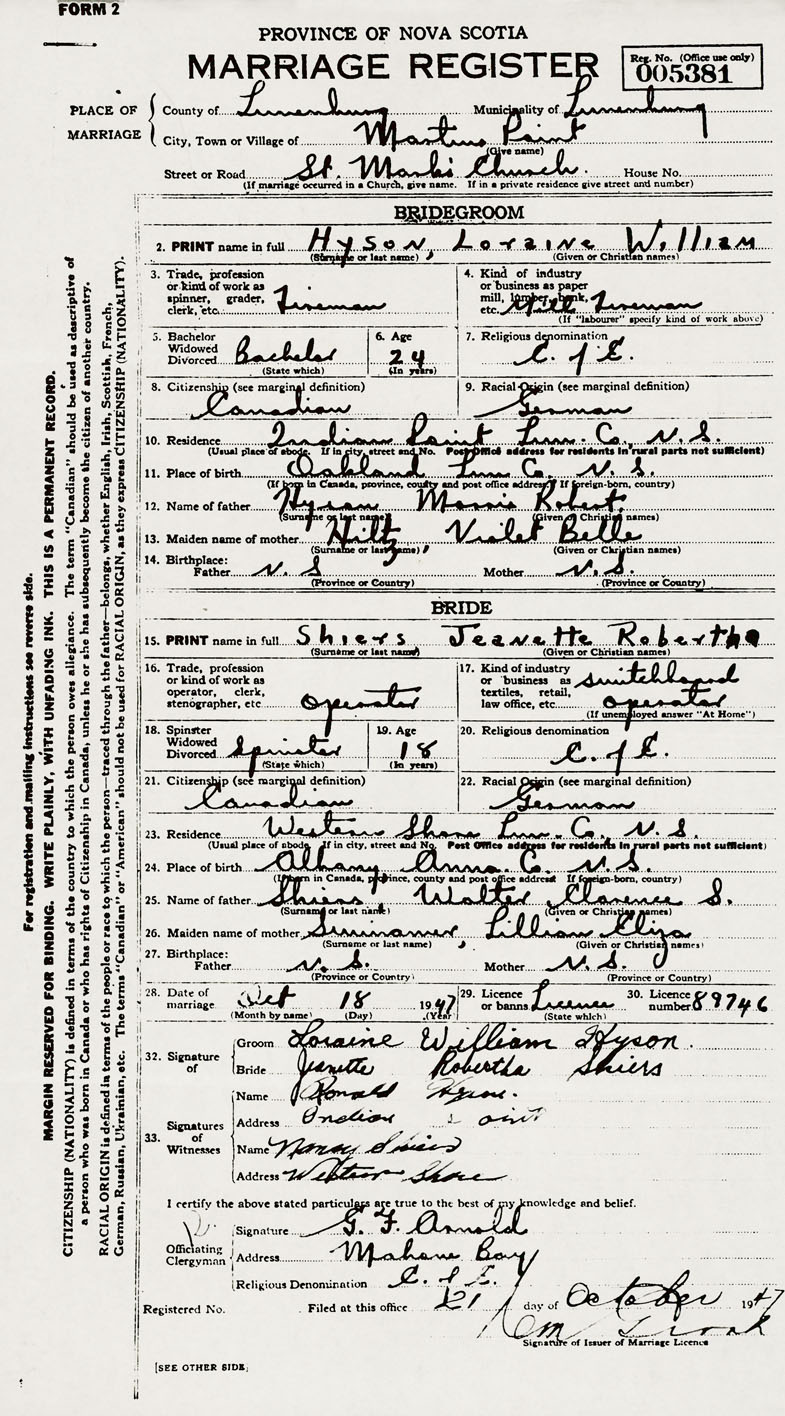 FORM 2
PROVINCE OF NOVA SCOTIA
MARRIAGE REGISTER
Reg. No. (Office use only)
005381
PLACE OF MARRIAGE
County of Lunenburg Municipality of Lunenburg
City, Town or Village of Martins Point
(Give name)
Street or Road St. Marks Church. House No.
(If marriage occurred in a Church, give name. If in a private residence give street and number)
BRIDEGROOM
2. PRINT name in full Hyson, Loraine William
(Surname or last name) (Given or Christian names)
3. Trade, profession or kind of work as spinner, grader, clerk, etc. Fireman
4. Kind of industry or business as paper mill, lumber, bank, etc. Mill Fireman
(If "labourer" specify kind of work above)
5. Bachelor Widowed Divorced Bachelor
(State which)
6. Age 24
(In years)
7. Religious denomination C. of E.
8. Citizenship (see marginal definition) Canadian
9. Racial Origin (see marginal definition) German
10. Residence Indian Point Lun. Co, N.S.
(Usual place of abode. If in city, street and No. Post Office address for residents in rural parts not sufficient)
11. Place of birth Oakland Lun Co. N.S.
(If born in Canada, province, county and post office address. If foreign-born, country)
12. Name of father Hyson Morris Robert.
(Surname or last name) (Given or Christian names)
13. Maiden name of mother Hiltz, Violet Belle
(Surname or last name) (Given or Christian names)
14. Birthplace: Father N.S Mother N.S.
(Province or Country) (Province or Country)
BRIDE
15. PRINT name in full Shiers Jeanette Robertha
(Surname or last name) (Given or Christian names)
16. Trade, profession or kind of work as operator, clerk, stenographer, etc. operator
17. Kind of industry or business as textiles, retail, law office, etc. switchboard operator
(If unemployed answer "At Home")
18. Spinster Widowed Divorced Spinster
(State which)
19. Age 18
(In years)
20. Religious denomination C. of E.
21. Citizenship (see marginal definition) Canadian
22. Racial Origin (see marginal definition) German
23. Residence Western Shore Lun. Co, N.S.
(Usual place of abode. If in city, street and No. Post Office address for residents in rural parts not sufficient)
24. Place of birth Albany Anna. C. N.S.
(If born in Canada, province, county and post office address. If foreign-born, country)
25. Name of father Shiers Walter Clarence S.
(Surname or last name) (Given or Christian names)
26. Maiden name of mother , Lillian Eliza
(Surname or last name) (Given or Christian names)
27. Birthplace: Father N.S. Mother N.S.
(Province or Country) (Province or Country)
28. Date of marriage Oct 18 1947
(Month by name) (Day) (Year)
29. Licence or banns Licence
(State which)
30. Licence number 89746
32. Signature of
Groom Loraine William Hyson.
Bride Jeanette Robertha Shiers
33. Signatures of Witnesses
Name Ronald Hyson.
Address Indian Point
Name Nancy Shiers
Address Western Shore
I certify the above stated particulars are true to the best of my knowledge and belief.
Officiating Clergyman
Signature G. F. Arnold
Address Mahone Bay
Religious Denomination C. of E.
Registered No. Filed at this office 21 day of October 1947
Signature of Issuer of Marriage Licence
[SEE OTHER SIDE]
For registration and mailing instructions see reverse side.
MARGIN RESERVED FOR BINDING. WRITE PLAINLY, WITH UNFADING INK. THIS IS A PERMANENT RECORD.
CITIZENSHIP (NATIONALITY) is defined in terms of the country to which the person owes allegiance. The term "Canadian" should be used as descriptive of
a person who was born in Canada or who has rights of Citizenship in Canada, unless he or she has subsequently become the citizen of another country.
RACIAL ORIGIN is defined in terms of the people or race to which the person—traced through the father—belongs, whether English, Irish, Scottish, French,
German, Russian, Ukrainian, etc. The terms "Canadian" or "American" should not be used for RACIAL ORIGIN, as they express CITIZENSHIP (NATIONALITY).